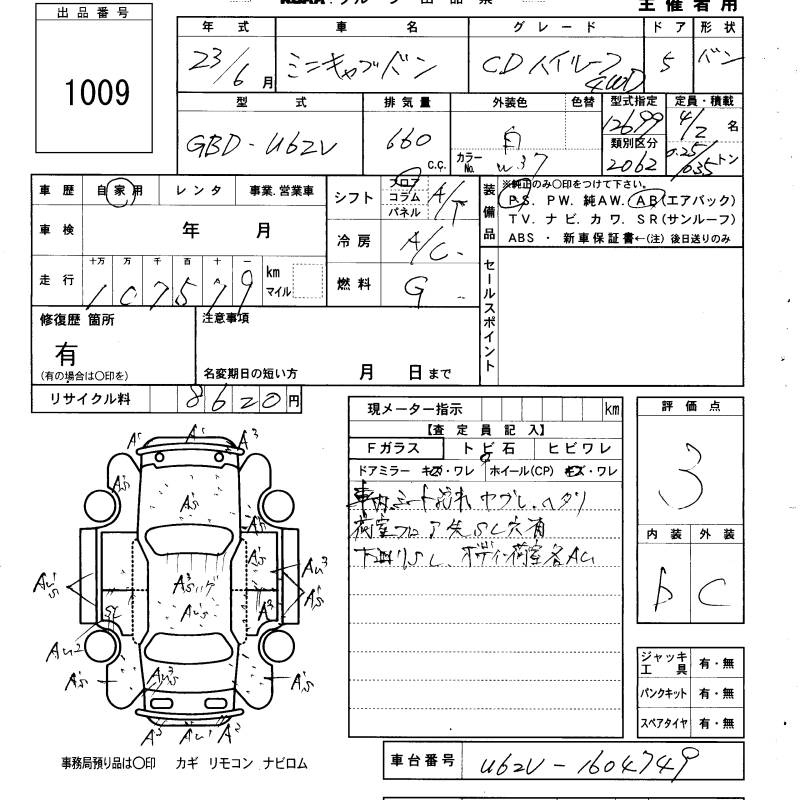 出品番号
1009
主催者用
年式 車名 グレード ドア 形状
23/6月 ミニキャブバン CDハイルーフ 4WD 5 バン
型式 排気量 外装色 色替 型式指定 定員・積載
GBD-U62V 660 C.C. 白 カラーNo. W37 12699 4/2名
類別区分 2062 0.25/0.35トン
車歴 自家用 レンタ 事業.営業車
シフト フロア コラム パネル A/T
装備品 ※純正のみ〇印をつけて下さい。
PS. PW. 純AW. AB(エアバック)
TV. ナビ. カワ. SR(サンルーフ)
ABS ・ 新車保証書←(注) 後日送りのみ
車検 年 月
冷房 A/C
走行 十万 万 千 百 十 一
107579 km マイル
燃料 G
セールスポイント
修復歴 箇所
有
(有の場合は〇印を)
注意事項
名変期日の短い方 月 日まで
リサイクル料 8620円
現メーター指示 km
【査定員記入】
Fガラス トビ石 ヒビワレ
ドアミラー キズ・ワレ ホイール(CP) キズ・ワレ
車内シート汚れ ヤブレ.ヘタリ
荷室フロア失SL穴有
下廻りSL. ボディ荷室各AU
評価点
3
内装 外装
D C
ジャッキ工具 有・無
パンクキット 有・無
スペアタイヤ 有・無
A's
A's
A3
A's
A's
A's
A's
AU's
A3s
AU's
AU3
A's
A3
SL
AU2
A's
AU3s
A's
A3
AU1
A2
事務局預り品は〇印 カギ リモコン ナビロム
車台番号 U62V-1604749